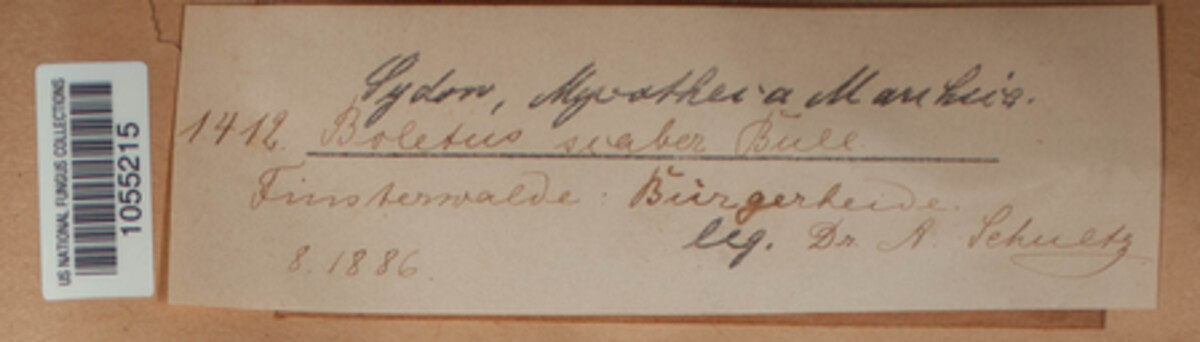 US NATIONAL FUNGUS COLLECTIONS
1055215
Sydow, Mycotheca Marchica.
1412. Boletus scaber Bull.
Finsterwalde: Bürgerheide.
leg. Dr. A. Schultz
8. 1886.